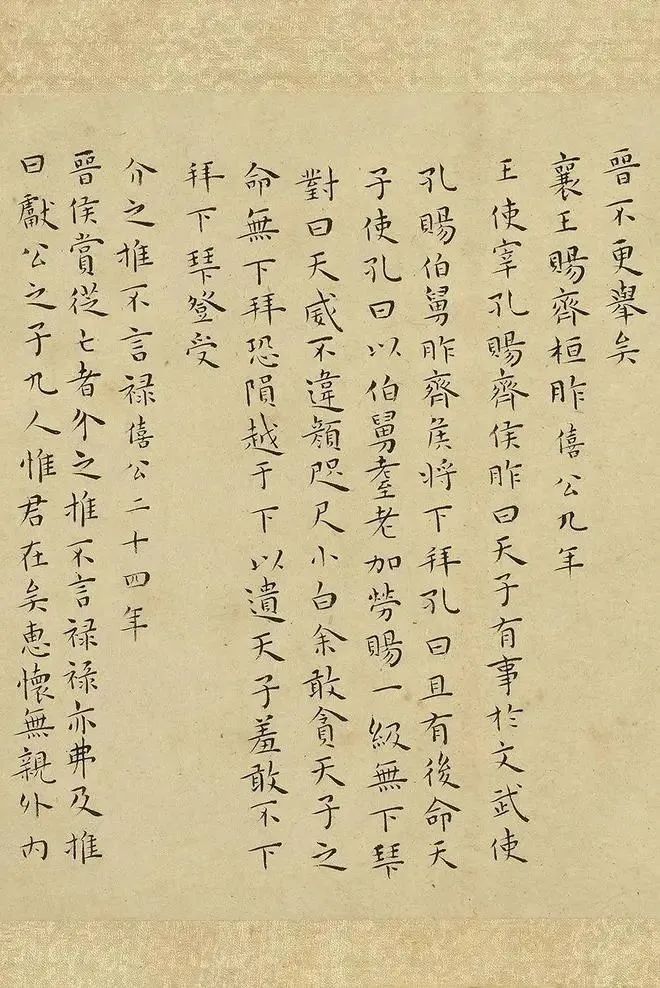 晉不更舉矣
襄王賜齊桓胙僖公九年
王使宰孔賜齊侯胙曰天子有事於文武使
孔賜伯舅胙齊侯將下拜孔曰且有後命天
子使孔曰以伯舅耋老加勞賜一級無下拜
對曰天威不違顏咫尺小白余敢貪天子之
命無下拜恐隕越于下以遺天子羞敢不下
拜下拜登受
介之推不言禄僖公二十四年
晉侯賞從亡者介之推不言禄禄亦弗及推
曰獻公之子九人惟君在矣惠懷無親外内